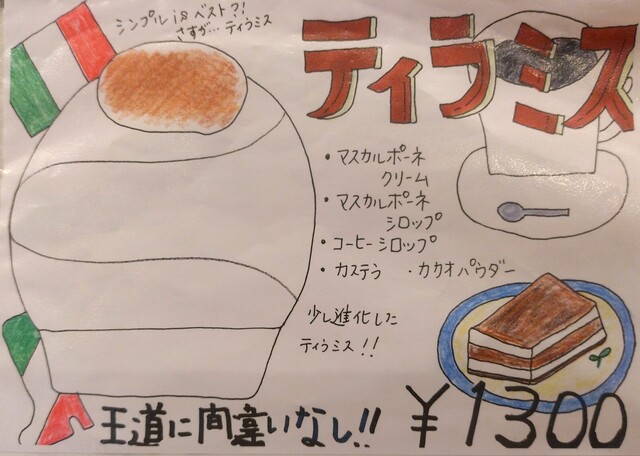 シンプル is ベストっ!
さすが… ティラミス
ティラミス
・マスカルポーネ
クリーム
・マスカルポーネ
シロップ
・コーヒーシロップ
・カステラ ・カカオパウダー
少し進化した
ティラミス!!
王道に間違いなし!!
¥1300